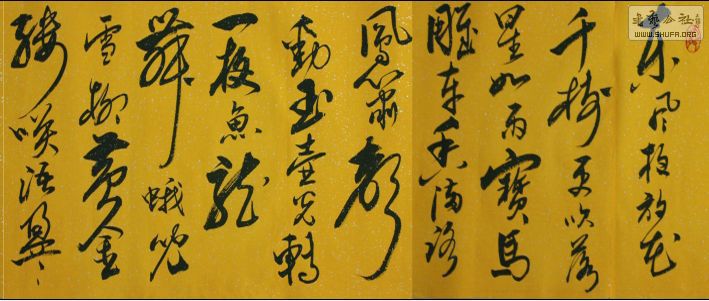 東風夜放花
千樹更吹落
星如雨寶馬
雕車香滿路
鳳簫聲
動玉壺光轉
一夜魚龍
舞蛾兒
雪柳黃金
縷笑語盈〻
WWW.SHUFA.ORG